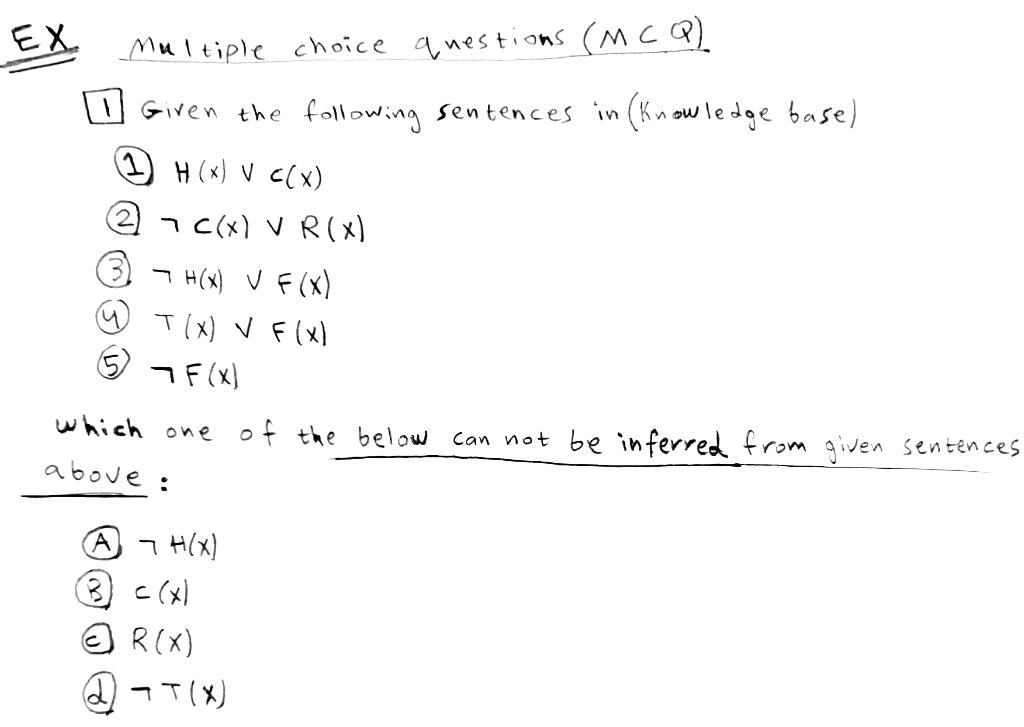 EX Multiple choice questions (MCQ)
1 Given the following sentences in (Knowledge base)
1 H(x) ∨ C(x)
2 ¬ C(x) ∨ R(x)
3 ¬ H(x) ∨ F(x)
4 T(x) ∨ F(x)
5 ¬ F(x)
which one of the below can not be inferred from given sentences
above :
A ¬ H(x)
B C(x)
C R(x)
d ¬ T(x)